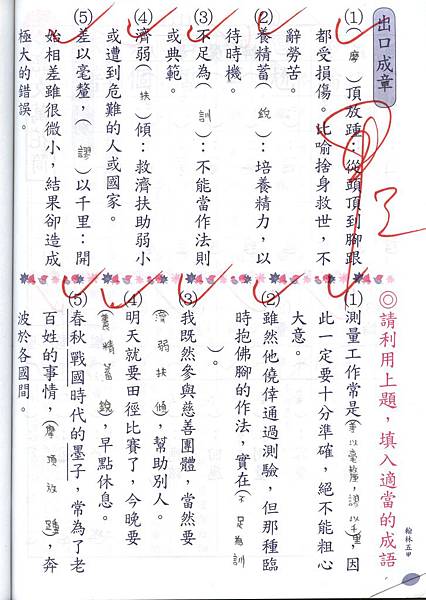 出口成章
(1)(摩)頂放踵：從頭頂到腳跟
都受損傷。比喻捨身救世，不
辭勞苦。
(2)養精蓄(銳)：培養精力，以
待時機。
(3)不足為(訓)：不能當作法則
或典範。
(4)濟弱(扶)傾：救濟扶助弱小
或遭到危難的人或國家。
(5)差以毫釐，(謬)以千里：開
始相差雖很微小，結果卻造成
極大的錯誤。
◎請利用上題，填入適當的成語
(1)測量工作常是(差以毫釐，謬以千里)，因
此一定要十分準確，絕不能粗心
大意。
(2)雖然他僥倖通過測驗，但那種臨
時抱佛腳的作法，實在(不足為訓
)。
(3)我既然參與慈善團體，當然要
(濟弱扶傾)，幫助別人。
(4)明天就要田徑比賽了，今晚要
(養精蓄銳)，早點休息。
(5)春秋戰國時代的墨子，常為了老
百姓的事情，(摩頂放踵)，奔
波於各國間。
翰林五甲